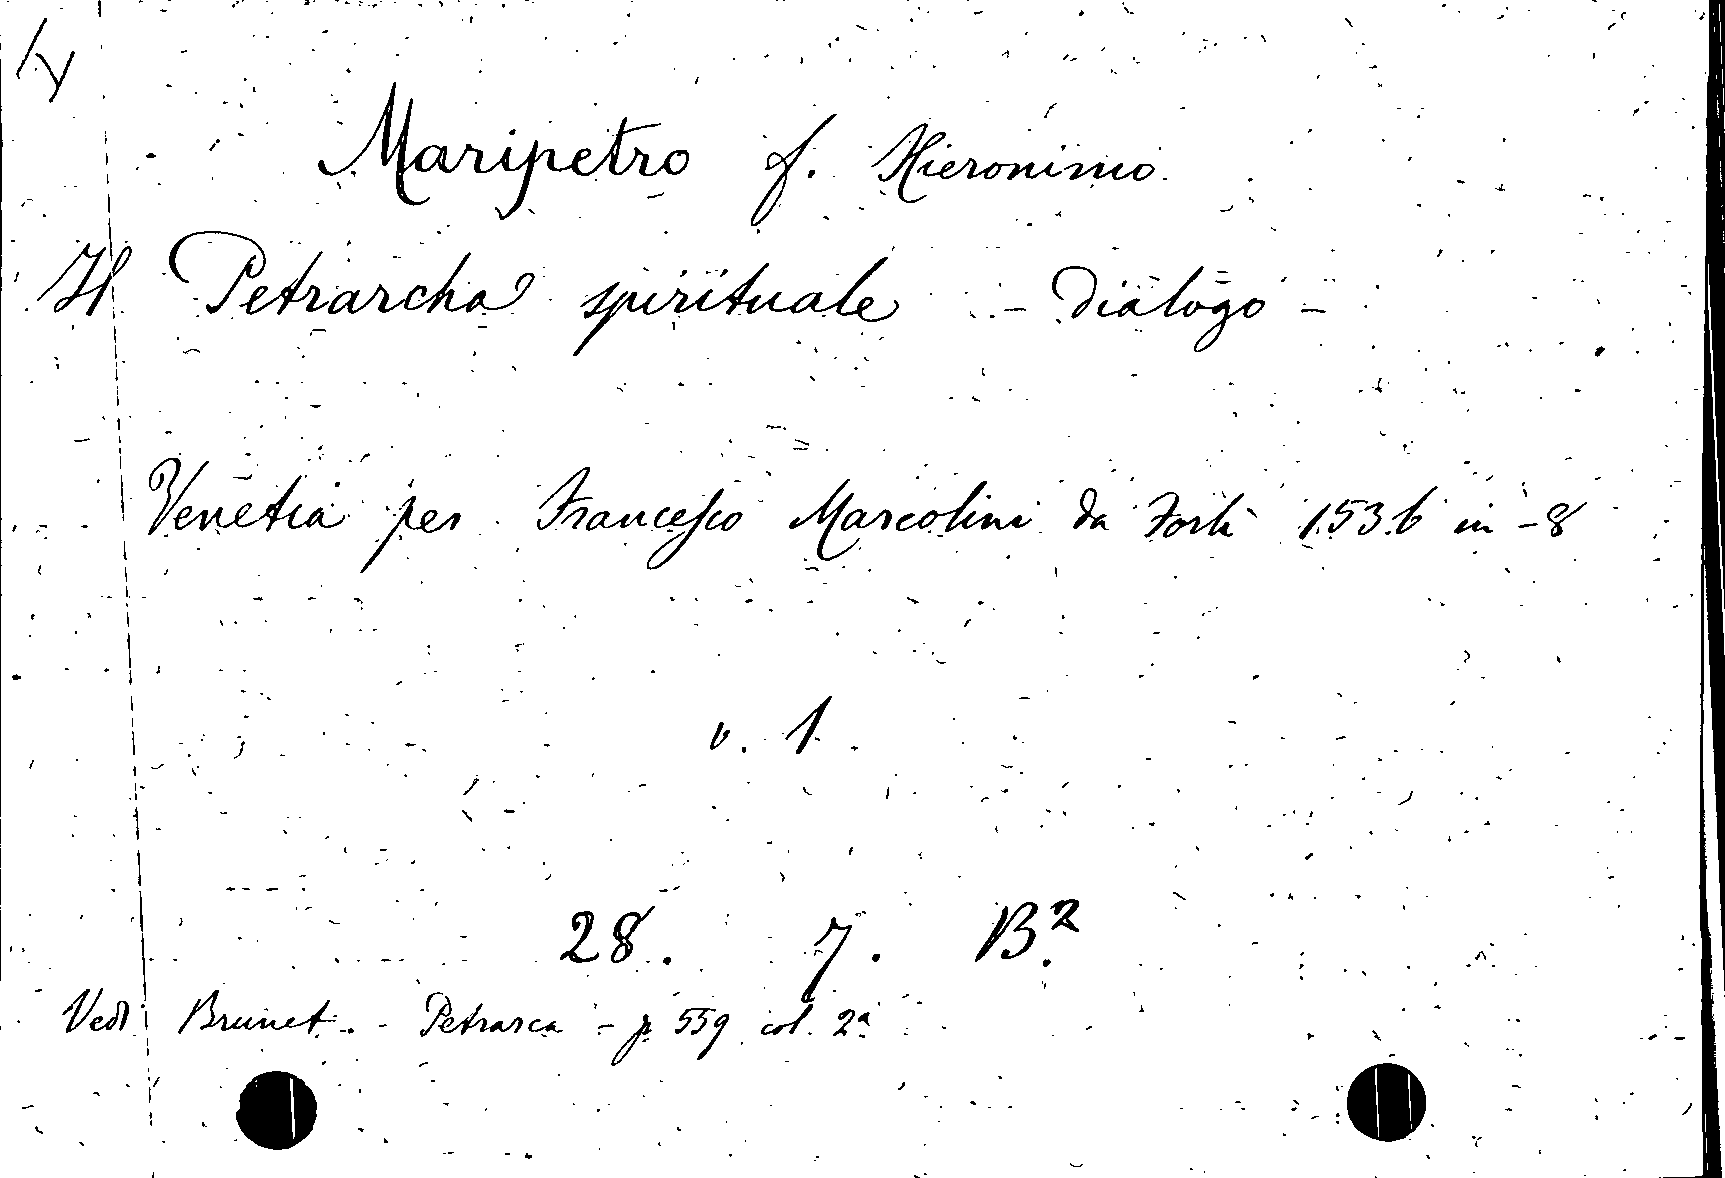 Maripetro f. Hieronimo
Il Petrarcha spirituale - Dialogo -
Venetia per Francesco Marcolini da Forlì 1536 in-8
v. 1
28. 7. B.2
Vedi Brunet. - Petrarca - p. 559 col. 2a